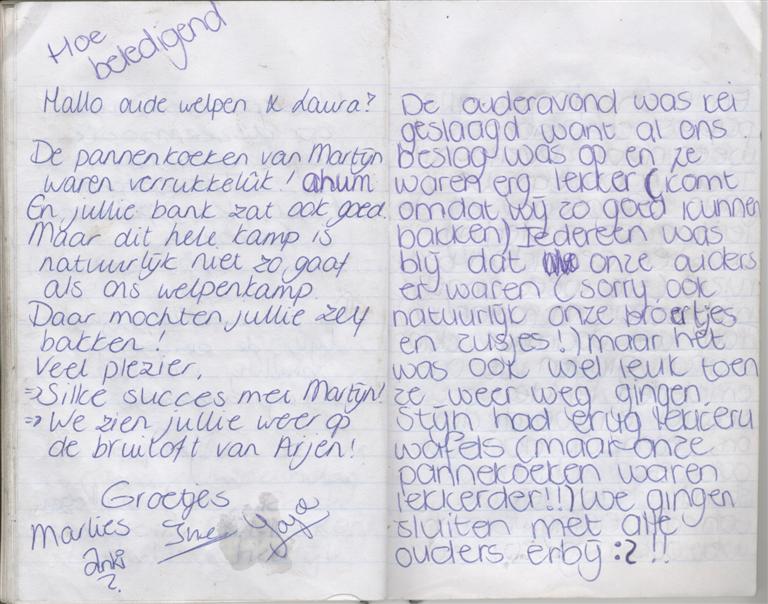 Hoe
beledigend
Hallo oude welpen & Laura?
De pannenkoeken van Martijn
waren verrukkelijk! ahum
En jullie bank zat ook goed.
Maar dit hele kamp is
natuurlijk niet zo gaaf
als ons welpenkamp.
Daar mochten jullie zelf
bakken!
Veel plezier.
⇒ Silke succes mei Martijn!
⇒ We zien jullie weer op
de bruiloft van Arjen!
Groetjes
Marlies Ine Yaya
Anki
De ouderavond was kei
geslaagd want al ons
beslag was op en ze
waren erg lekker (komt
omdat wij zo goed kunnen
bakken) Iedereen was
blij dat onze ouders
er waren (sorry ook
natuurlijk onze broertjes
en zusjes!) maar het
was ook wel leuk toen
ze weer weg gingen.
Stijn had erug lekkeru
wafels (maar onze
pannekoeken waren
lekkerder!!) we gingen
sluiten met alle
ouders erbij :? !!